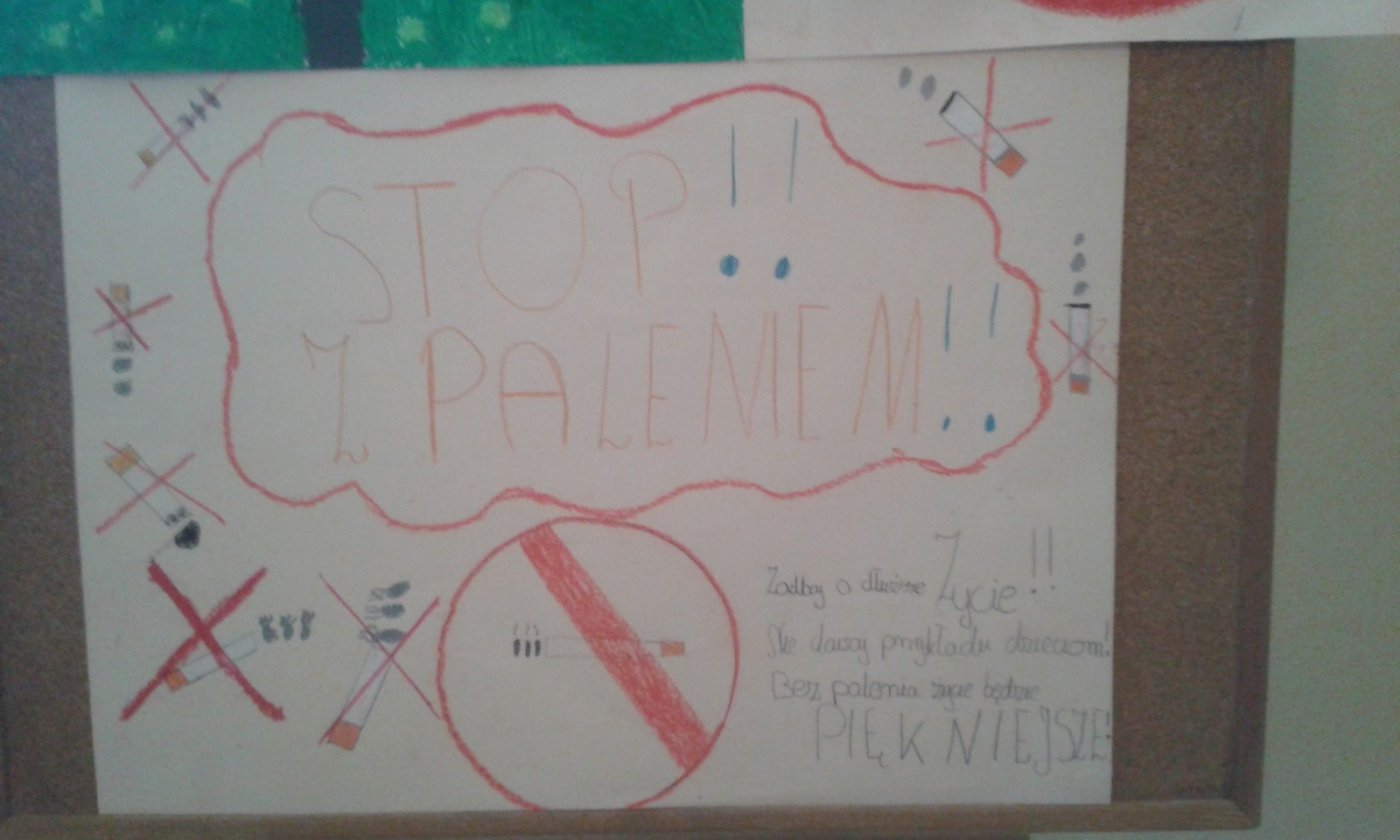 STOP !!
Z PALENIEM !!
Zadbaj o dłuższe Życie!!
Nie dawaj przykładu dzieciom!
Bez palenia życie będzie
PIĘKNIEJSZE!